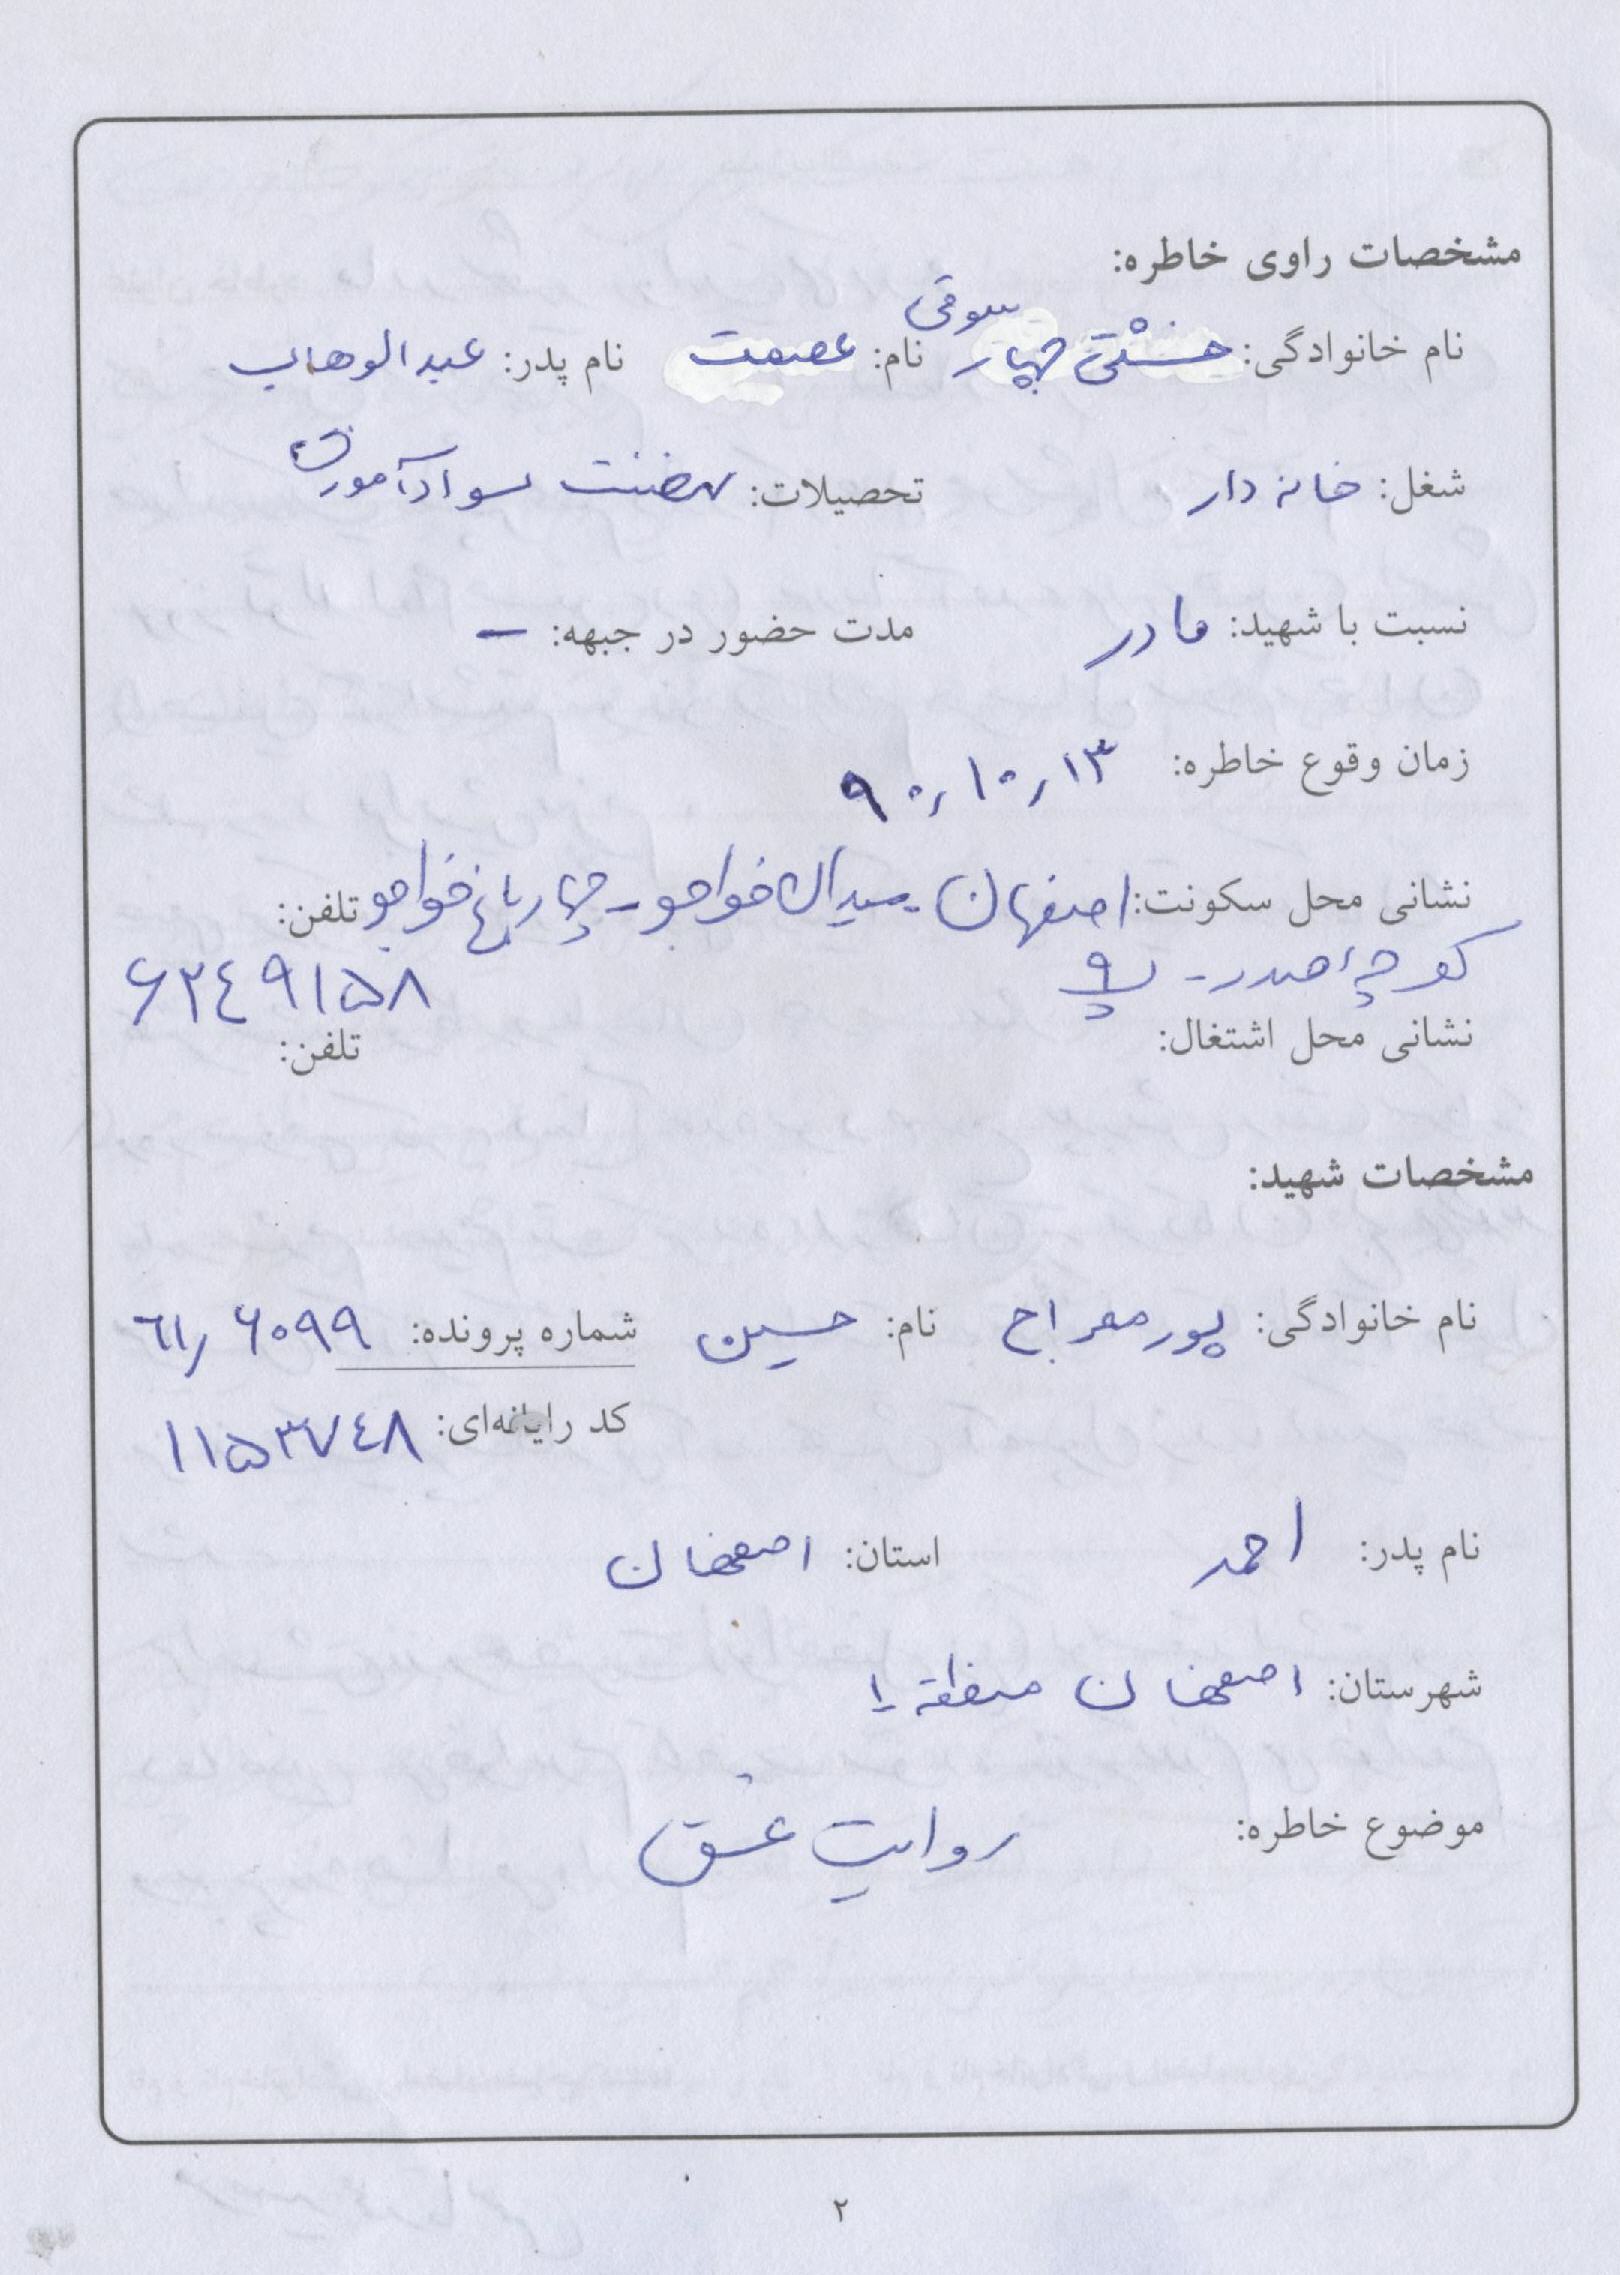 مشخصات راوی خاطره:
نام خانوادگی: خشتی چهار سوقی نام: عصمت نام پدر: عبدالوهاب
شغل: خانه دار تحصیلات: نهضت سوادآموزی
نسبت با شهید: مادر مدت حضور در جبهه: –
زمان وقوع خاطره: ۹۰٫۱۰٫۱۳
نشانی محل سکونت: اصفهان - میدان خواجو - چهارباغ خواجو تلفن:
کوچه صدر - پ ۹ ۶۲۴۹۱۵۸
نشانی محل اشتغال: تلفن:
مشخصات شهید:
نام خانوادگی: پورمعراج نام: حسین شماره پرونده: ۶۱٫۶۰۹۹
کد رایانه‌ای: ۱۱۵۳۷۴۸
نام پدر: احمد استان: اصفهان
شهرستان: اصفهان منطقه ۱
موضوع خاطره: روایت عشق
۲